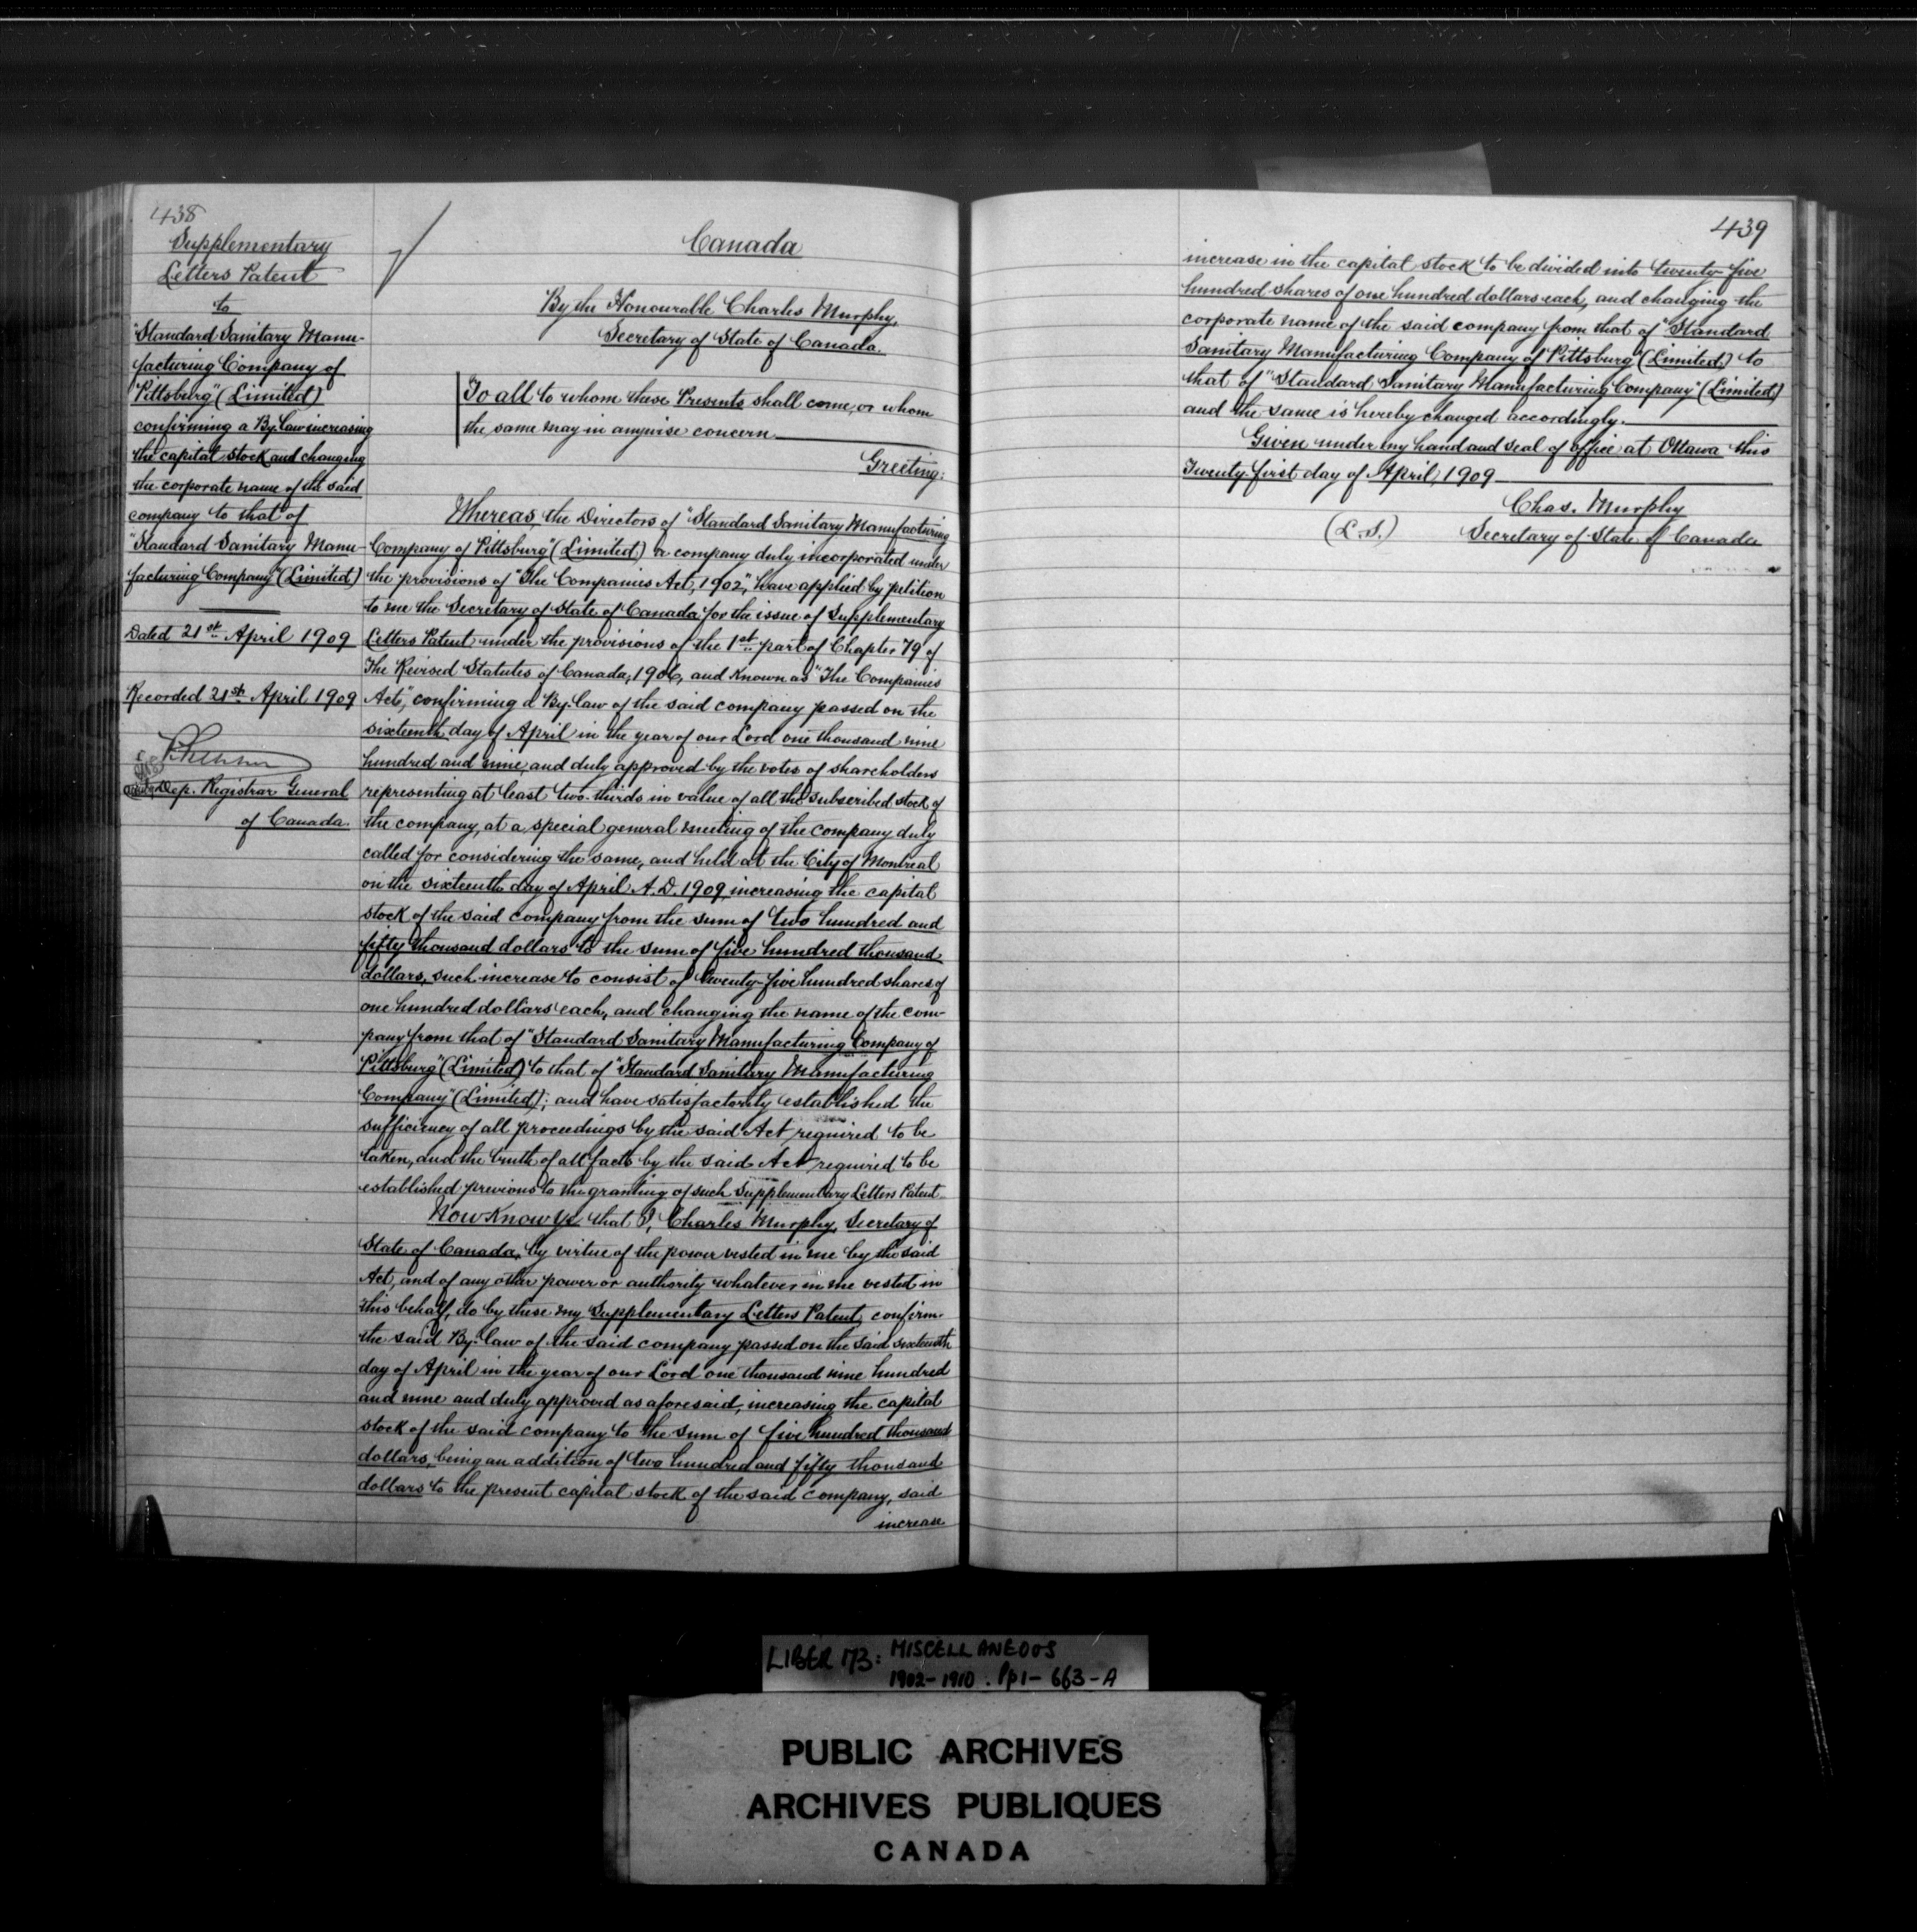 438
Supplementary
Letters Patent
to
"Standard Sanitary Manu-
facturing Company of
Pittsburg" (Limited)
confirming a By-law increasing
the capital stock and changing
the corporate name of the said
company to that of
"Standard Sanitary Manu-
facturing Company" (Limited)
Dated 21st April 1909
Recorded 21st April 1909
Dep. Registrar General
of Canada.
Canada
By the Honourable Charles Murphy,
Secretary of State of Canada.
To all to whom these Presents shall come, or whom
the same may in anywise concern
Greeting:
Whereas, the Directors of "Standard Sanitary Manufacturing
Company of Pittsburg" (Limited) a company duly incorporated under
the provisions of "The Companies Act, 1902", have applied by petition
to me the Secretary of State of Canada for the issue of Supplementary
Letters Patent under the provisions of the 1st part of Chapter 79 of
The Revised Statutes of Canada, 1906, and known as "The Companies
Act", confirming a By-law of the said company passed on the
sixteenth day of April in the year of our Lord one thousand nine
hundred and nine, and duly approved by the votes of shareholders
representing at least two-thirds in value of all the subscribed stock of
the company, at a special general meeting of the company duly
called for considering the same, and held at the City of Montreal
on the sixteenth day of April A.D. 1909, increasing the capital
stock of the said company from the sum of two hundred and
fifty thousand dollars to the sum of five hundred thousand
dollars, such increase to consist of twenty-five hundred shares of
one hundred dollars each, and changing the name of the com-
pany from that of "Standard Sanitary Manufacturing Company of
Pittsburg" (Limited) to that of "Standard Sanitary Manufacturing
Company" (Limited); and have satisfactorily established the
sufficiency of all proceedings by the said Act required to be
taken, and the truth of all facts by the said Act required to be
established previous to the granting of such Supplementary Letters Patent.
Now Know Ye that I, Charles Murphy, Secretary of
State of Canada, by virtue of the power vested in me by the said
Act, and of any other power or authority whatever in me vested in
this behalf, do by these my Supplementary Letters Patent, confirm
the said By-law of the said company passed on the said sixteenth
day of April in the year of our Lord one thousand nine hundred
and nine and duly approved as aforesaid, increasing the capital
stock of the said company to the sum of five hundred thousand
dollars, being an addition of two hundred and fifty thousand
dollars to the present capital stock of the said company, said
increase
439
increase in the capital stock to be divided into twenty-five
hundred shares of one hundred dollars each, and changing the
corporate name of the said company from that of "Standard
Sanitary Manufacturing Company of Pittsburg" (Limited) to
that of "Standard Sanitary Manufacturing Company" (Limited)
and the same is hereby changed accordingly.
Given under my hand and seal of office at Ottawa this
Twenty-first day of April, 1909
Chas. Murphy
(L.S.) Secretary of State of Canada
LIBER 173: MISCELLANEOUS
1902-1910. Pp 1-663-A
PUBLIC ARCHIVES
ARCHIVES PUBLIQUES
CANADA